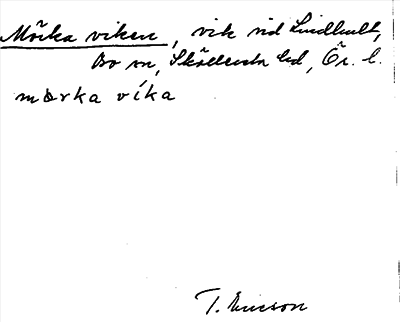 Mörka viken, vik vid Lindhult,
Bo sn, Sköllersta hd, Ör. l.
mørka víka
T. Ericson